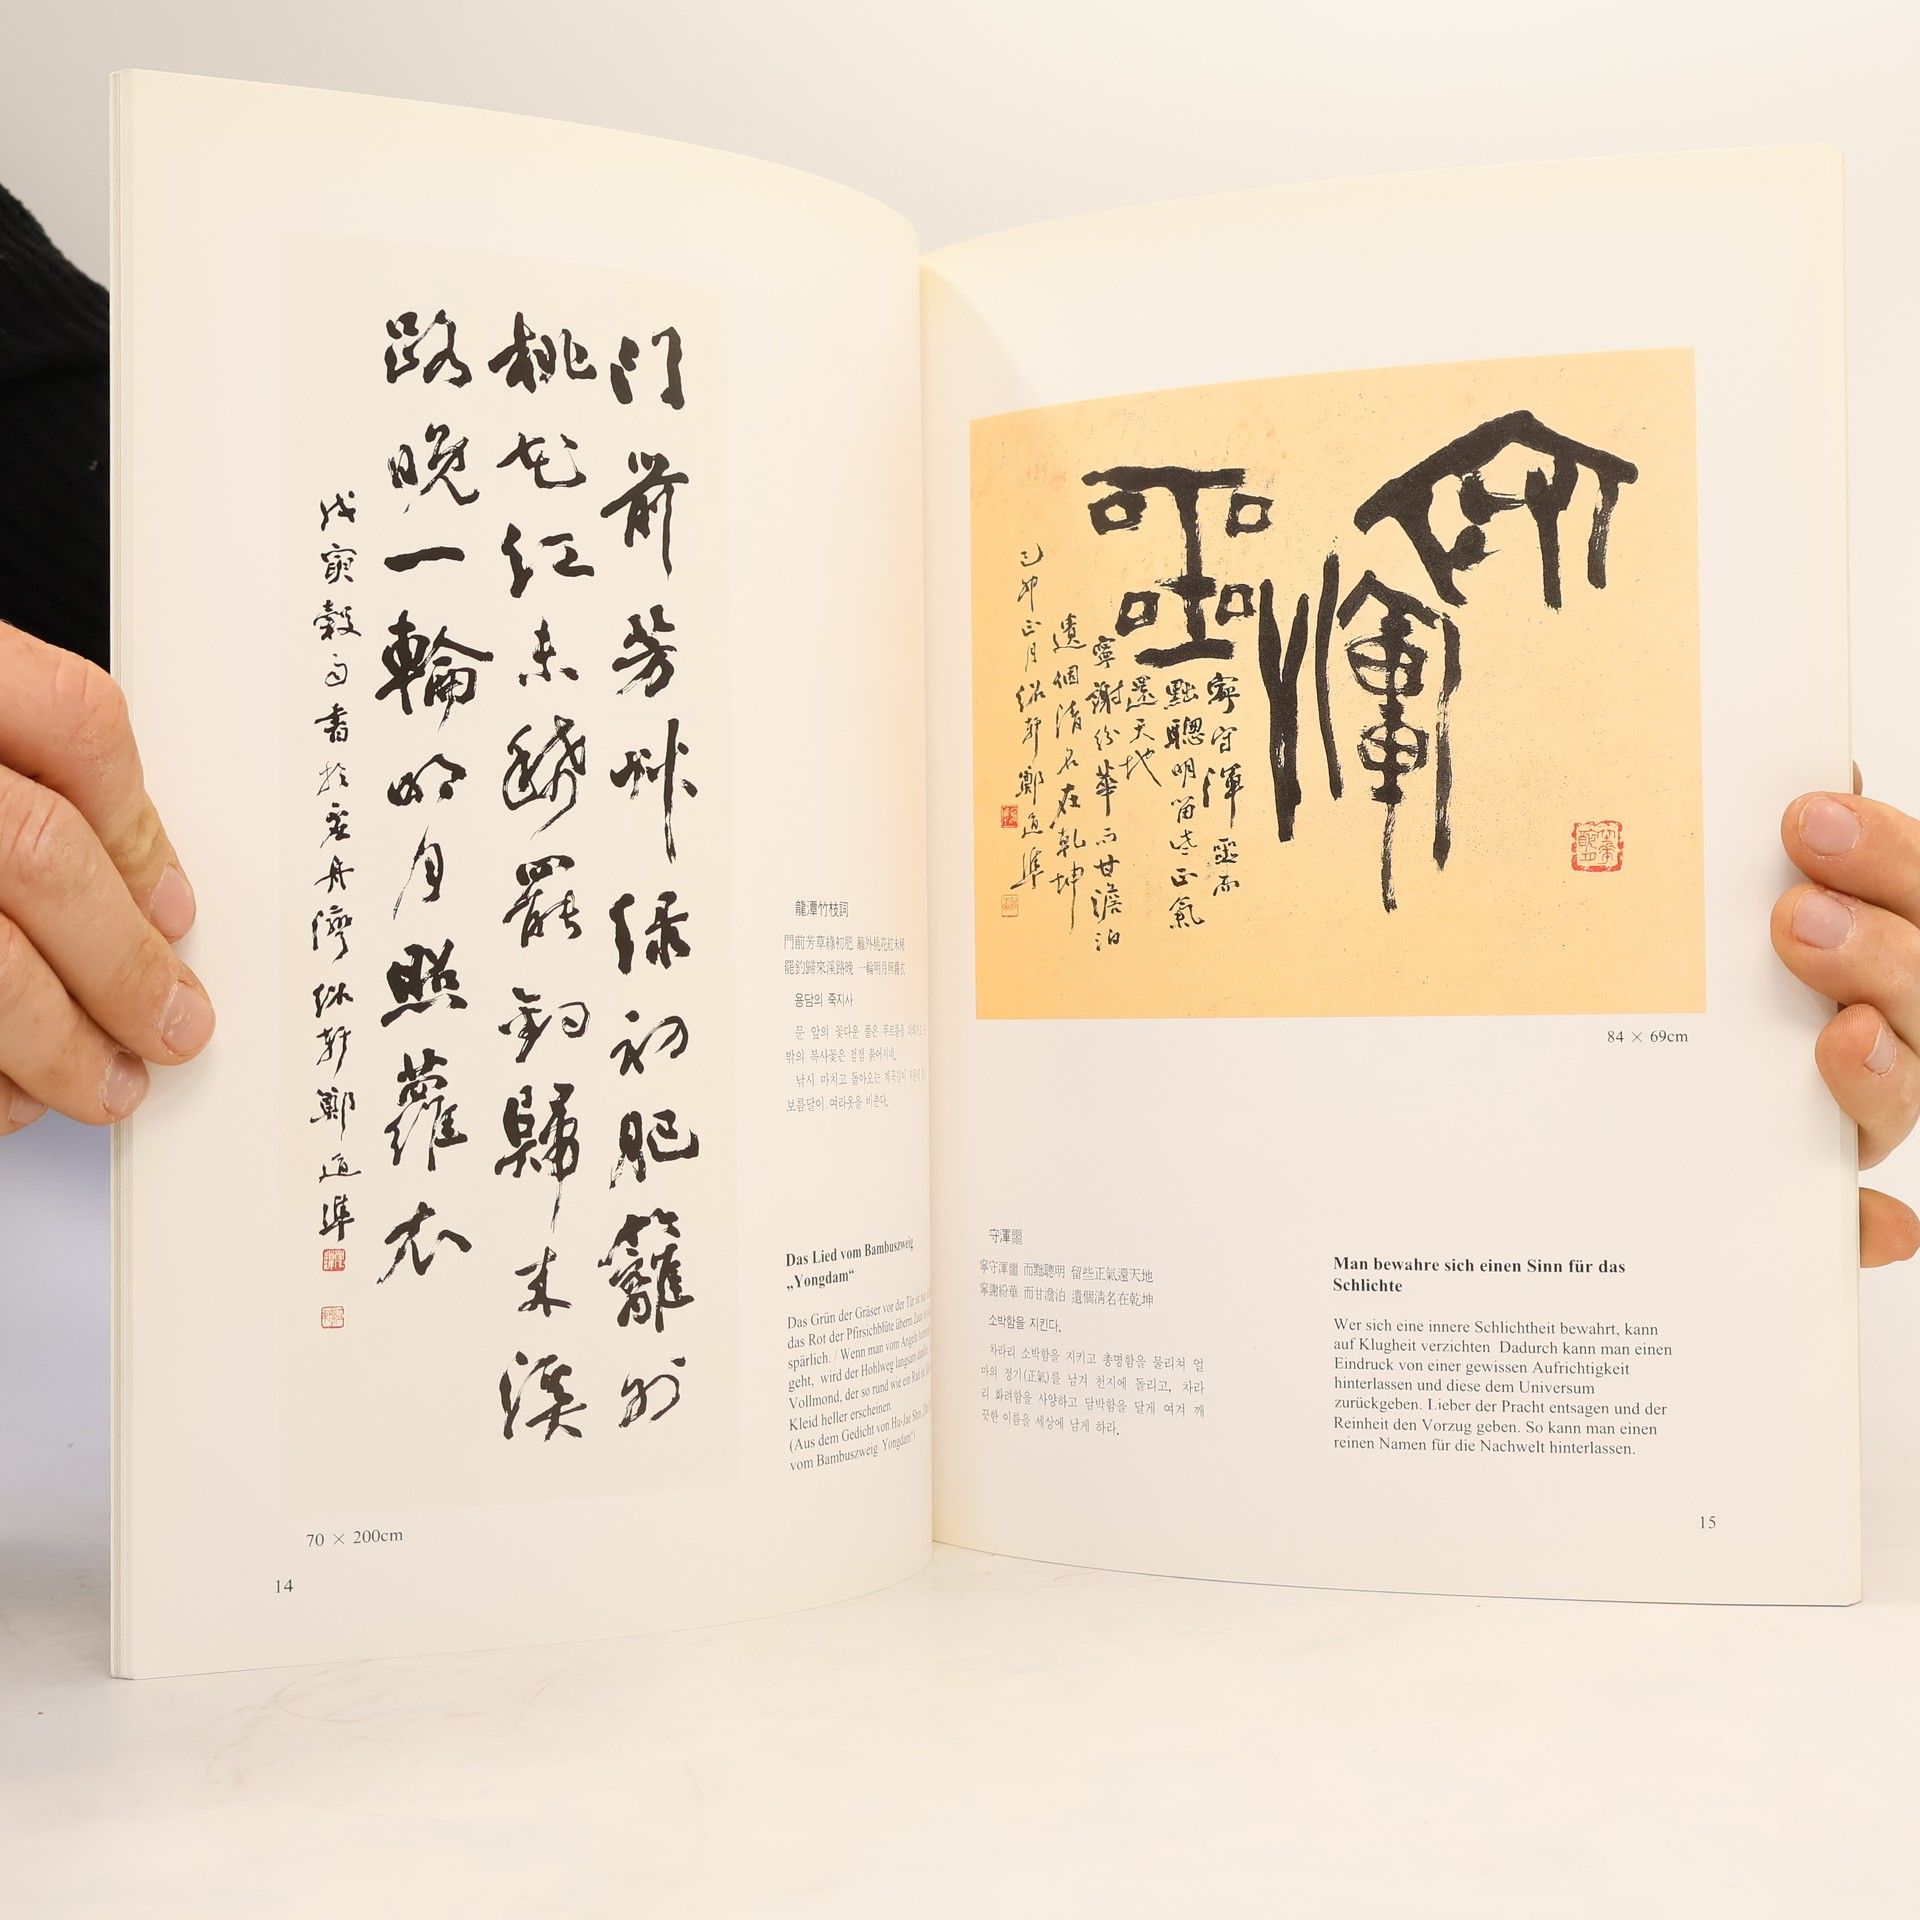 門前芳艸綠初肥籬外
桃花紅未稀罷釣歸來溪
路晚一輪明月照蘿衣
戊寅穀雨書於
鄭道準
70 × 200cm
14
龍潭竹枝詞
門前芳草綠初肥 籬外桃花紅未稀
罷釣歸來溪路晚 一輪明月照蘿衣
용담의 죽지사
문 앞의 꽃다운 풀은 푸르름을
밖의 복사꽃은 점점 붉어지네.
낚시 마치고 돌아오는 계곡길이
보름달이 여라옷을 비춘다.
Das Lied vom Bambuszweig
„Yongdam“
Das Grün der Gräser vor der Tür ist
das Rot der Pfirsichblüte überm Zaun
spärlich. / Wenn man vom Angeln
geht, wird der Hohlweg langsam
Vollmond, der so rund wie ein Rad ist
Kleid heller erscheinen.
(Aus dem Gedicht von Hu-Jae Shin
vom Bambuszweig Yongdam“)
守渾噩
寧守渾噩而
黜聰明留些正氣
還天地
寧謝紛華而甘澹泊
遺個清名在乾坤
己卯正月 鄭道準
84 × 69cm
守渾噩
寧守渾噩 而黜聰明 留些正氣還天地
寧謝紛華 而甘澹泊 遺個淸名在乾坤
소박함을 지킨다.
차라리 소박함을 지키고 총명함을 물리쳐 얼
마의 정기(正氣)를 남겨 천지에 돌리고, 차라
리 화려함을 사양하고 담박함을 달게 여겨 깨
끗한 이름을 세상에 남게 하라.
Man bewahre sich einen Sinn für das
Schlichte
Wer sich eine innere Schlichtheit bewahrt, kann
auf Klugheit verzichten Dadurch kann man einen
Eindruck von einer gewissen Aufrichtigkeit
hinterlassen und diese dem Universum
zurückgeben. Lieber der Pracht entsagen und der
Reinheit den Vorzug geben. So kann man einen
reinen Namen für die Nachwelt hinterlassen.
15